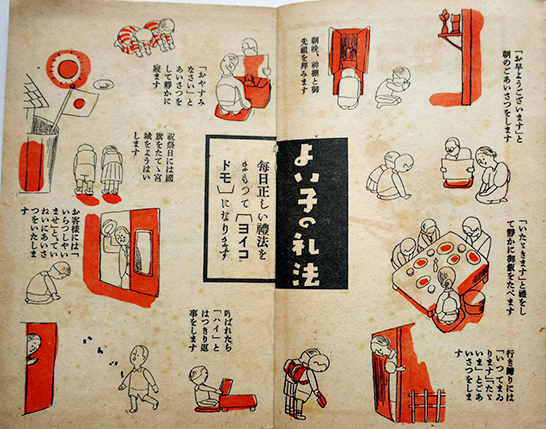 よい子の礼法
「お早ようございます」と
朝のごあいさつをします
朝晩、神棚と御
先祖を拝みます
「いたゞきます」と禮をし
て靜かに御飯をたべます
行き歸りには
「いつてまゐ
ります」「たゞ
いま」とごあ
いさつをしま
す
毎日正しい禮法を
まもつて「ヨイコ
ドモ」になります
「おやすみ
なさい」と
あいさつを
して靜かに
寢ます
祝祭日には國
旗をたてゝ宮
城をようはい
します
お客樣には「
いらつしやい
ませ」とてい
ねいにあいさ
つをいたしま
す
呼ばれたら
「ハイ」と
はつきり返
事をします